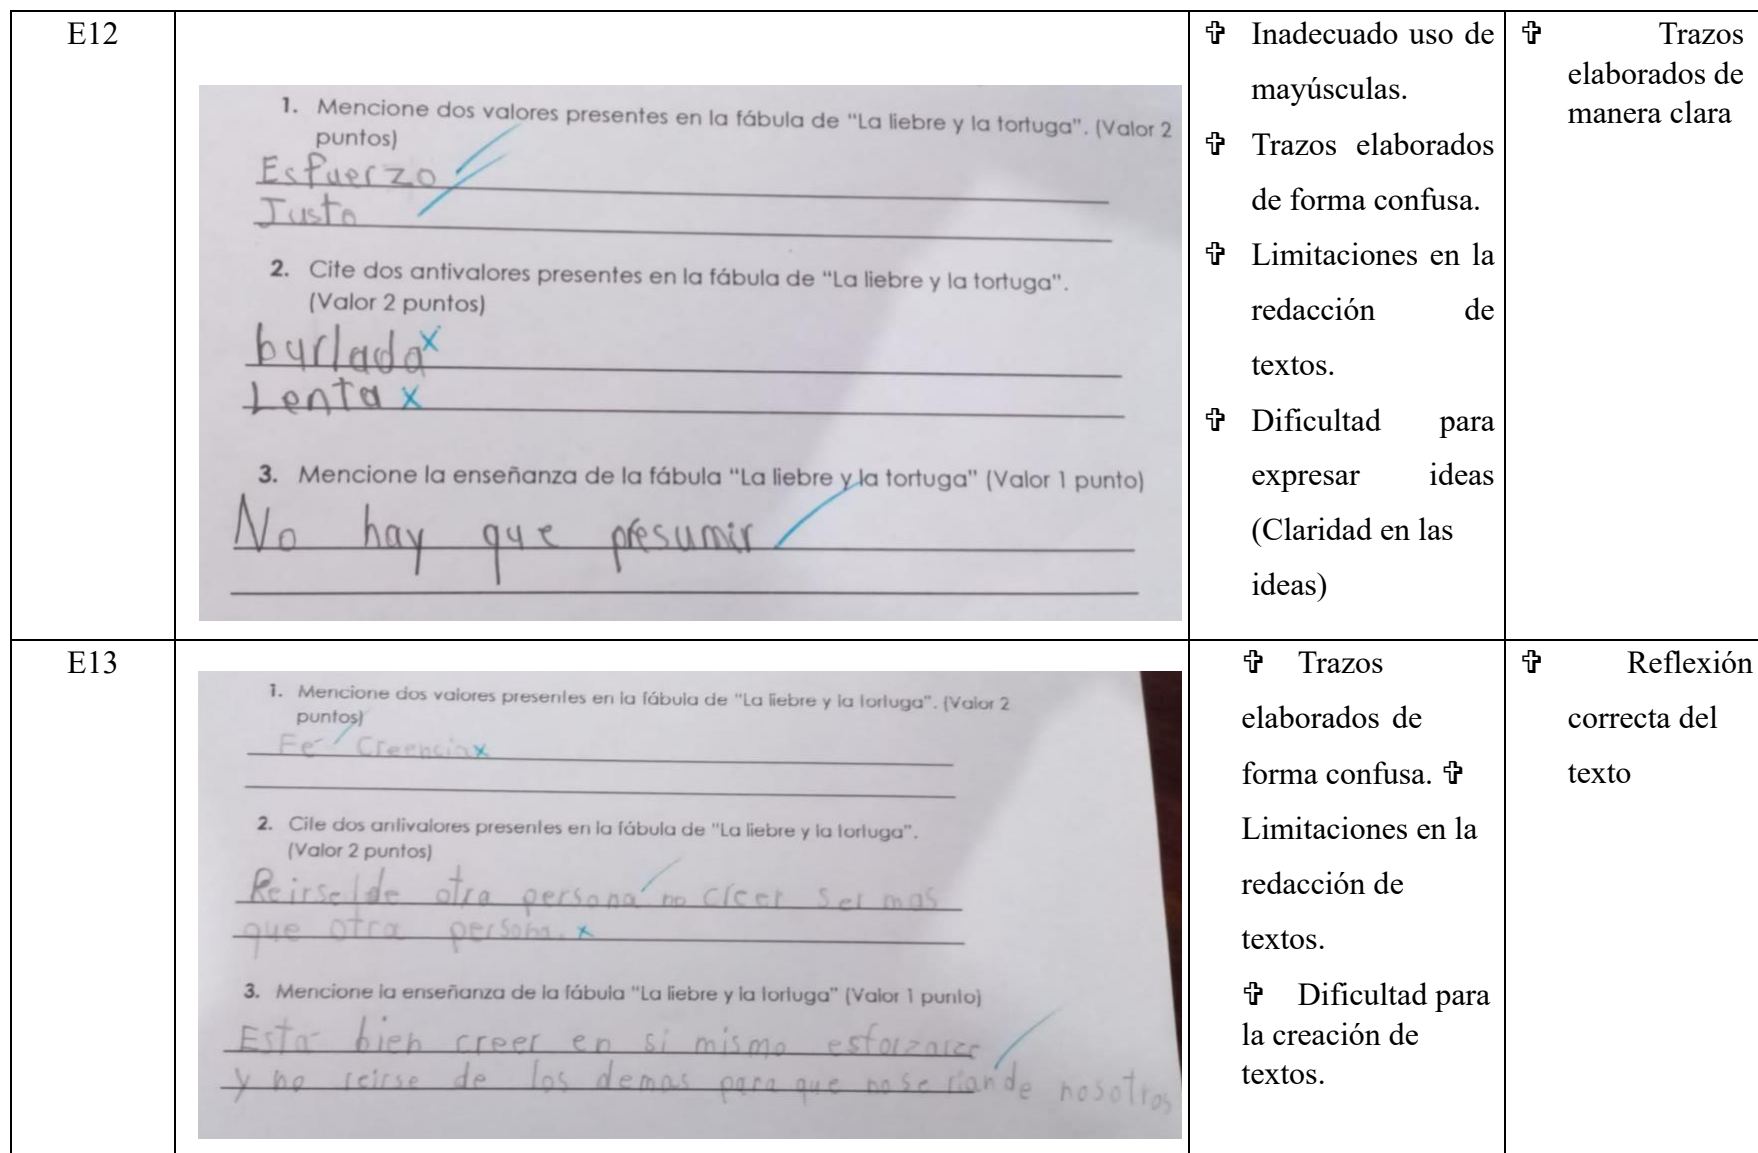 E12
1. Mencione dos valores presentes en la fábula de "La liebre y la tortuga". (Valor 2
puntos)
Esfuerzo
Justo
2. Cite dos antivalores presentes en la fábula de "La liebre y la tortuga".
(Valor 2 puntos)
burlada
Lenta
3. Mencione la enseñanza de la fábula "La liebre y la tortuga" (Valor 1 punto)
No hay que presumir
✞ Inadecuado uso de
mayúsculas.
✞ Trazos elaborados
de forma confusa.
✞ Limitaciones en la
redacción de
textos.
✞ Dificultad para
expresar ideas
(Claridad en las
ideas)
✞ Trazos
elaborados de
manera clara
E13
1. Mencione dos valores presentes en la fábula de "La liebre y la tortuga". (Valor 2
puntos)
Fé Creencia
2. Cite dos antivalores presentes en la fábula de "La liebre y la tortuga".
(Valor 2 puntos)
Reirse de otra persona no creer ser mas
que otra persona.
3. Mencione la enseñanza de la fábula "La liebre y la tortuga" (Valor 1 punto)
Esta bien creer en si mismo esforzarce
y no reirse de los demas para que no se rian de nosotros
✞ Trazos
elaborados de
forma confusa. ✞
Limitaciones en la
redacción de
textos.
✞ Dificultad para
la creación de
textos.
✞ Reflexión
correcta del
texto